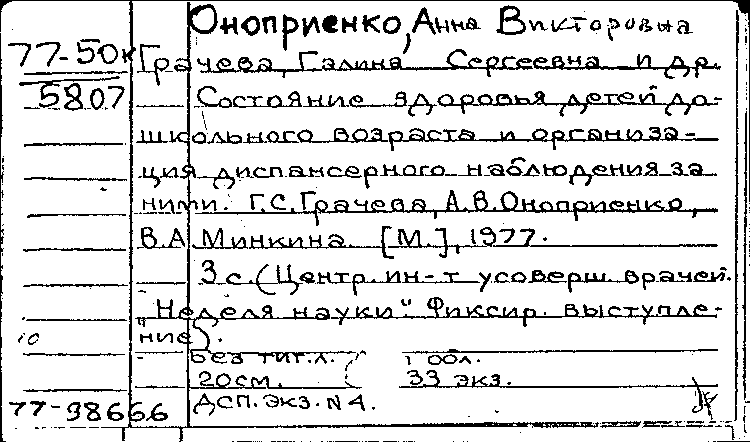 Оноприенко, Анна Викторовна
77-50к Грачева, Галина Сергеевна и др.
5807 Состояние здоровья детей до-
школьного возраста и организа-
ция диспансерного наблюдения за
ними. Г.С.Грачева, А.В.Оноприенко,
В.А.Минкина. [М.], 1977.
3 с. (Центр. ин-т усоверш. врачей.
"Неделя науки". Фиксир. выступле-
10 ние).
Без тит.л. 1 обл.
20см. 33 экз.
77-98666 ДСП. ЭКЗ. N 4.